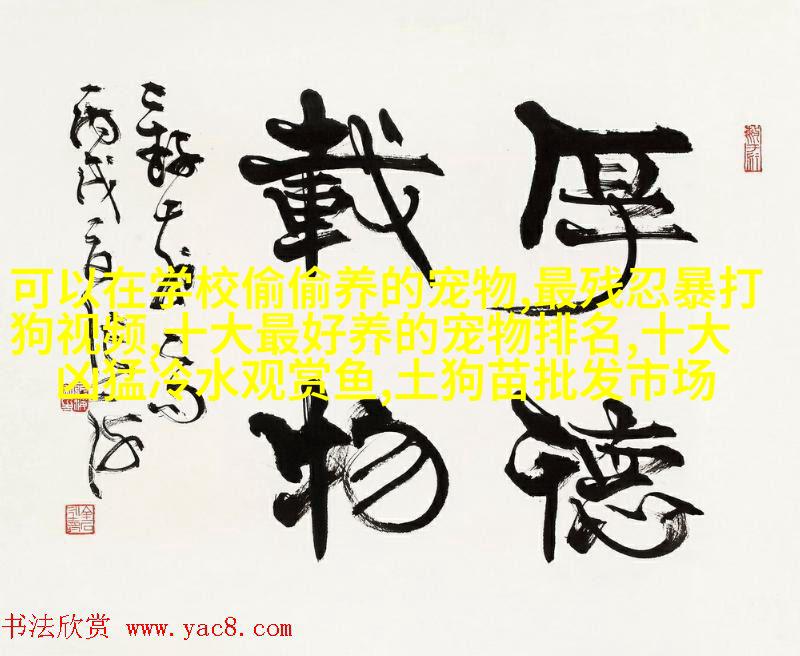 厚德
載物
可以在学校偷偷养的宠物,最残忍暴打
狗视频,十大最好养的宠物排名,十大
凶猛冷水观赏鱼,土狗苗批发市场
书法欣赏 www.yac8.com